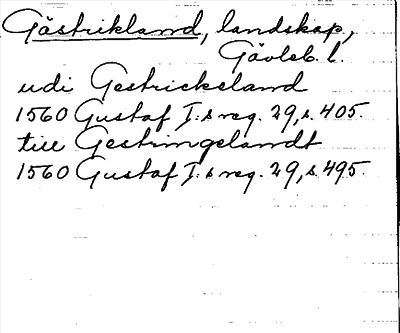 Gästrikland, landskap,
Gävleb. l.
udi Gestrickeland
1560 Gustaf I:s reg. 29, s. 405.
till Gestringelandt
1560 Gustaf I:s reg. 29, s. 495.